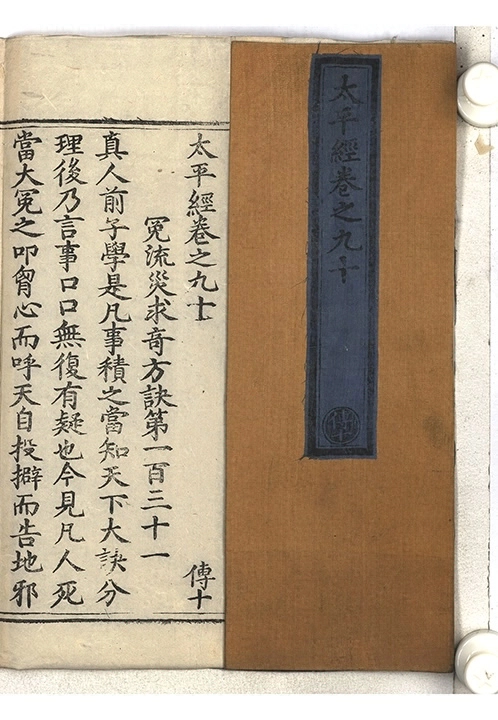 太平經卷之九十
傳
太平經卷之九十
傳十
冤流災求奇方訣第一百三十一
真人前子學是凡事積之當知天下大訣分
理後乃言事口口無復有疑也今見凡人死
當大冤之叩胷心而呼天自投擗而告地邪